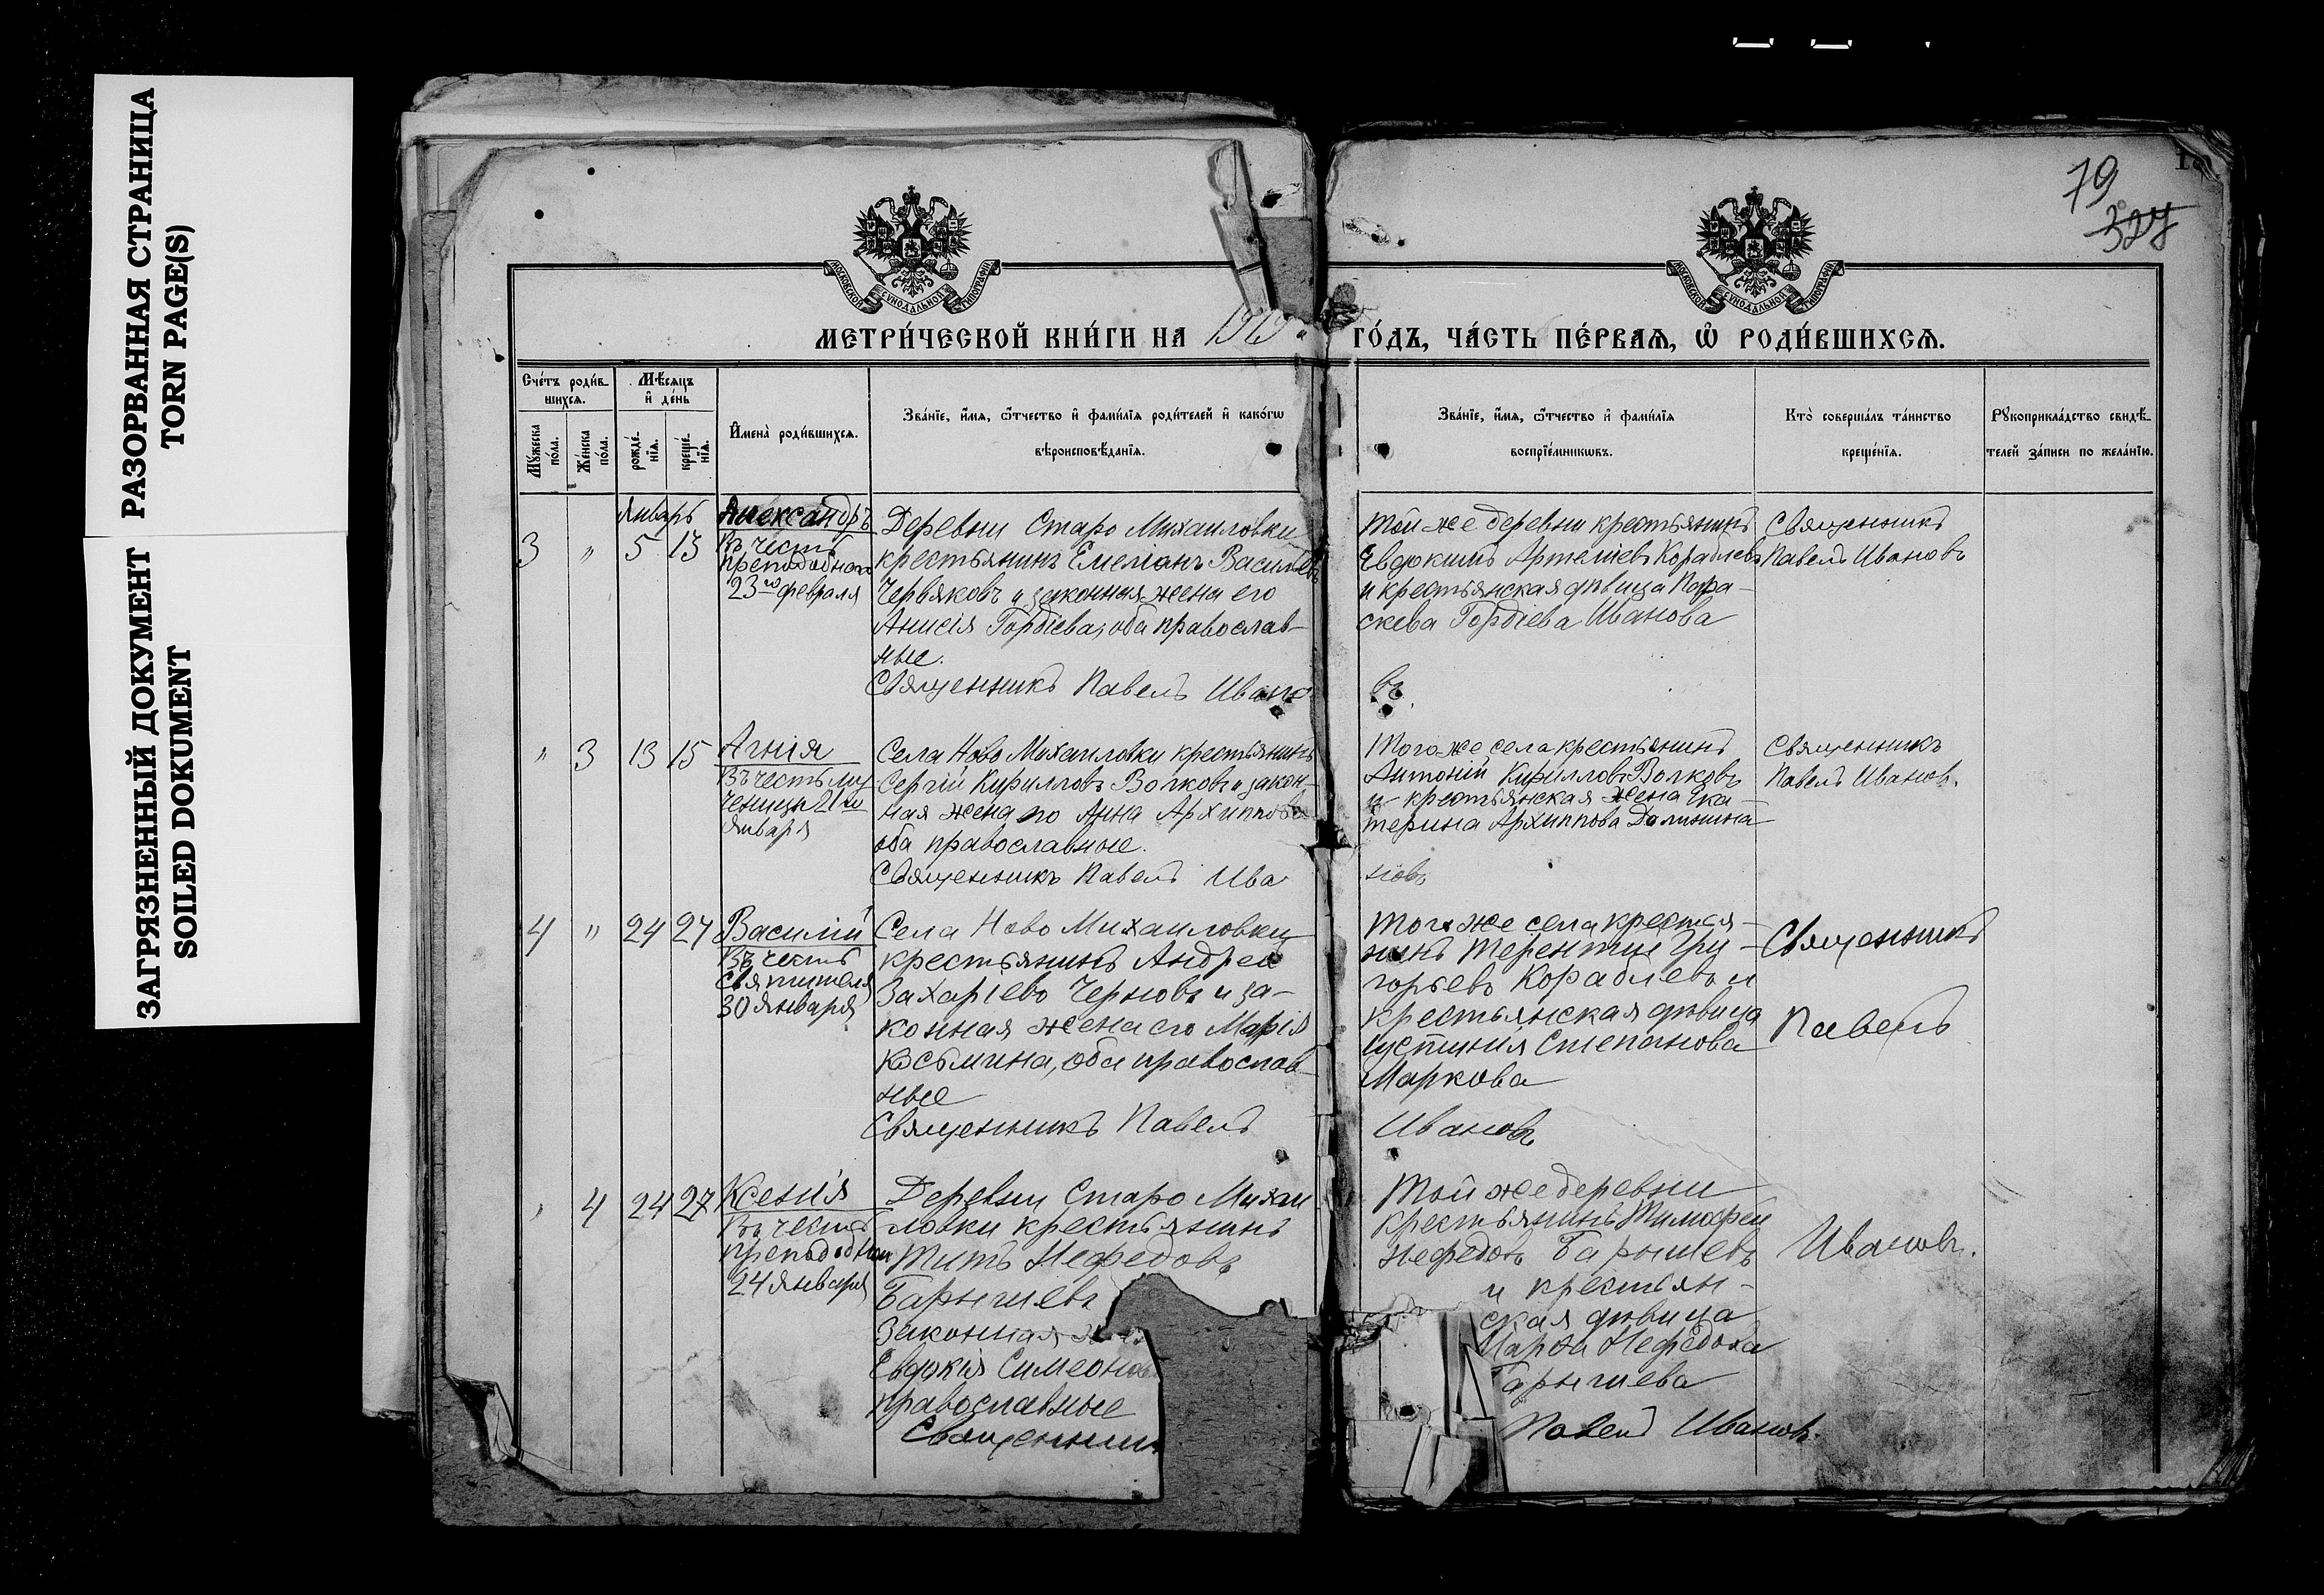 РАЗОРВАННАЯ СТРАНИЦА
TORN PAGE(S)
ЗАГРЯЗНЕННЫЙ ДОКУМЕНТ
SOILED DOKUMENT
79
327
МОСКОВСКОЙ СѴНОДАЛЬНОЙ ТИПОГРАФІИ
МОСКОВСКОЙ СѴНОДАЛЬНОЙ ТИПОГРАФІИ
МЕТРИ́ЧЕСКОЙ КНИ́ГИ НА
ГО́ДЪ, ЧА́СТЬ ПЕ́РВАѦ, Ѡ҆ РОДИ́ВШИХСѦ.
Сче́тъ роди́в-
шихсѧ.
Мѣ́сѧцъ
и҆ де́нь
Мꙋ́жеска
по́ла.
Же́нска
по́ла.
рожде́-
нїѧ.
креще́-
нїѧ.
И҆мена̀ роди́вшихсѧ.
Зва́нїе, и҆́мѧ, ѻ҆́тчество и҆ фами́лїѧ роди́телей и҆ како́гѡ
вѣроисповѣ́данїѧ.
Зва́нїе, и҆́мѧ, ѻ҆́тчество и҆ фами́лїѧ
воспрїе́мникѡвъ.
Кто̀ соверша́лъ та́инство
креще́нїѧ.
Рꙋкоприкла́дство свидѣ́-
телей за́писи по жела́нїю.
Январь
3 " 5 13
Александръ
Въ честь
преподобнаго
23го февраля
Деревни Старо Михаиловки
крестьянинъ Емеліанъ Васильевъ
Червяковъ и законная жена его
Анисія Гордіева, оба православ-
ные.
Священникъ Павелъ Ивано
Той же деревни крестьянинъ
Евдокимъ Артеміевъ Кораблевъ
и крестьянская дѣвица Пара-
скева Гордіева Иванова
въ.
Священникъ
Павелъ Ивановъ
" 3 13 15
Агнія
Въ честь му
ченицы 21го
января
Села Ново Михаиловки крестьянинъ
Сергій Кирилловъ Волковъ и закон-
ная жена его Анна Архиппова
оба православные.
Священникъ Павелъ Ива
Того же села крестьянинъ
Антоній Кирилловъ Волковъ
и крестьянская жена Ека-
терина Архиппова Долинина
новъ
Священникъ
Павелъ Ивановъ.
4 " 24 27
Василій
Въ честь
Святителя
30 января
Села Ново Михаиловки
крестьянинъ Андрей
Захаріевъ Черновъ и за-
конная жена его Марія
Косьмина, оба православ
ные
Священникъ Павелъ
Того же села крестья-
нинъ Терентій Гри-
горьевъ Кораблевъ и
крестьянская дѣвица
Іустинія Степанова
Маркова
Ивановъ
Священникъ
Павелъ
" 4 24 27
Ксенія
Въ честь
преподобной
24 января
Деревни Старо Михаи
ловки крестьянинъ
Титъ Нефедовъ
Барышевъ
Законная
Евдокія Симеонов
православные
Священник
Той же деревни
крестьянинъ Тимофей
Нефедовъ Барышевъ
и крестьян-
ская дѣвица
Марѳа Нефедова
Барышева
Павелъ Ивановъ.
Ивановъ.